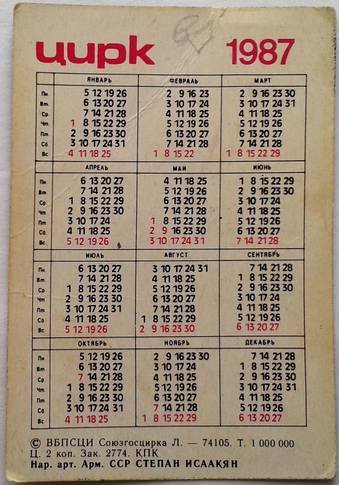 цирк 1987
ЯНВАРЬ ФЕВРАЛЬ МАРТ
Пн 5 12 19 26 2 9 16 23 2 9 16 23 30
Вт 6 13 20 27 3 10 17 24 3 10 17 24 31
Ср 7 14 21 28 4 11 18 25 4 11 18 25
Чт 1 8 15 22 29 5 12 19 26 5 12 19 26
Пт 2 9 16 23 30 6 13 20 27 6 13 20 27
Сб 3 10 17 24 31 7 14 21 28 7 14 21 28
Вс 4 11 18 25 1 8 15 22 1 8 15 22 29
АПРЕЛЬ МАЙ ИЮНЬ
Пн 6 13 20 27 4 11 18 25 1 8 15 22 29
Вт 7 14 21 28 5 12 19 26 2 9 16 23 30
Ср 1 8 15 22 29 6 13 20 27 3 10 17 24
Чт 2 9 16 23 30 7 14 21 28 4 11 18 25
Пт 3 10 17 24 1 8 15 22 29 5 12 19 26
Сб 4 11 18 25 2 9 16 23 30 6 13 20 27
Вс 5 12 19 26 3 10 17 24 31 7 14 21 28
ИЮЛЬ АВГУСТ СЕНТЯБРЬ
Пн 6 13 20 27 3 10 17 24 31 7 14 21 28
Вт 7 14 21 28 4 11 18 25 1 8 15 22 29
Ср 1 8 15 22 29 5 12 19 26 2 9 16 23 30
Чт 2 9 16 23 30 6 13 20 27 3 10 17 24
Пт 3 10 17 24 31 7 14 21 28 4 11 18 25
Сб 4 11 18 25 1 8 15 22 29 5 12 19 26
Вс 5 12 19 26 2 9 16 23 30 6 13 20 27
ОКТЯБРЬ НОЯБРЬ ДЕКАБРЬ
Пн 5 12 19 26 2 9 16 23 30 7 14 21 28
Вт 6 13 20 27 3 10 17 24 1 8 15 22 29
Ср 7 14 21 28 4 11 18 25 2 9 16 23 30
Чт 1 8 15 22 29 5 12 19 26 3 10 17 24 31
Пт 2 9 16 23 30 6 13 20 27 4 11 18 25
Сб 3 10 17 24 31 7 14 21 28 5 12 19 26
Вс 4 11 18 25 1 8 15 22 29 6 13 20 27
© ВБПСЦИ Союзгосцирка Л. — 74105. Т. 1 000 000
Ц. 2 коп. Зак. 2774. КПК
Нар. арт. Арм. ССР СТЕПАН ИСААКЯН